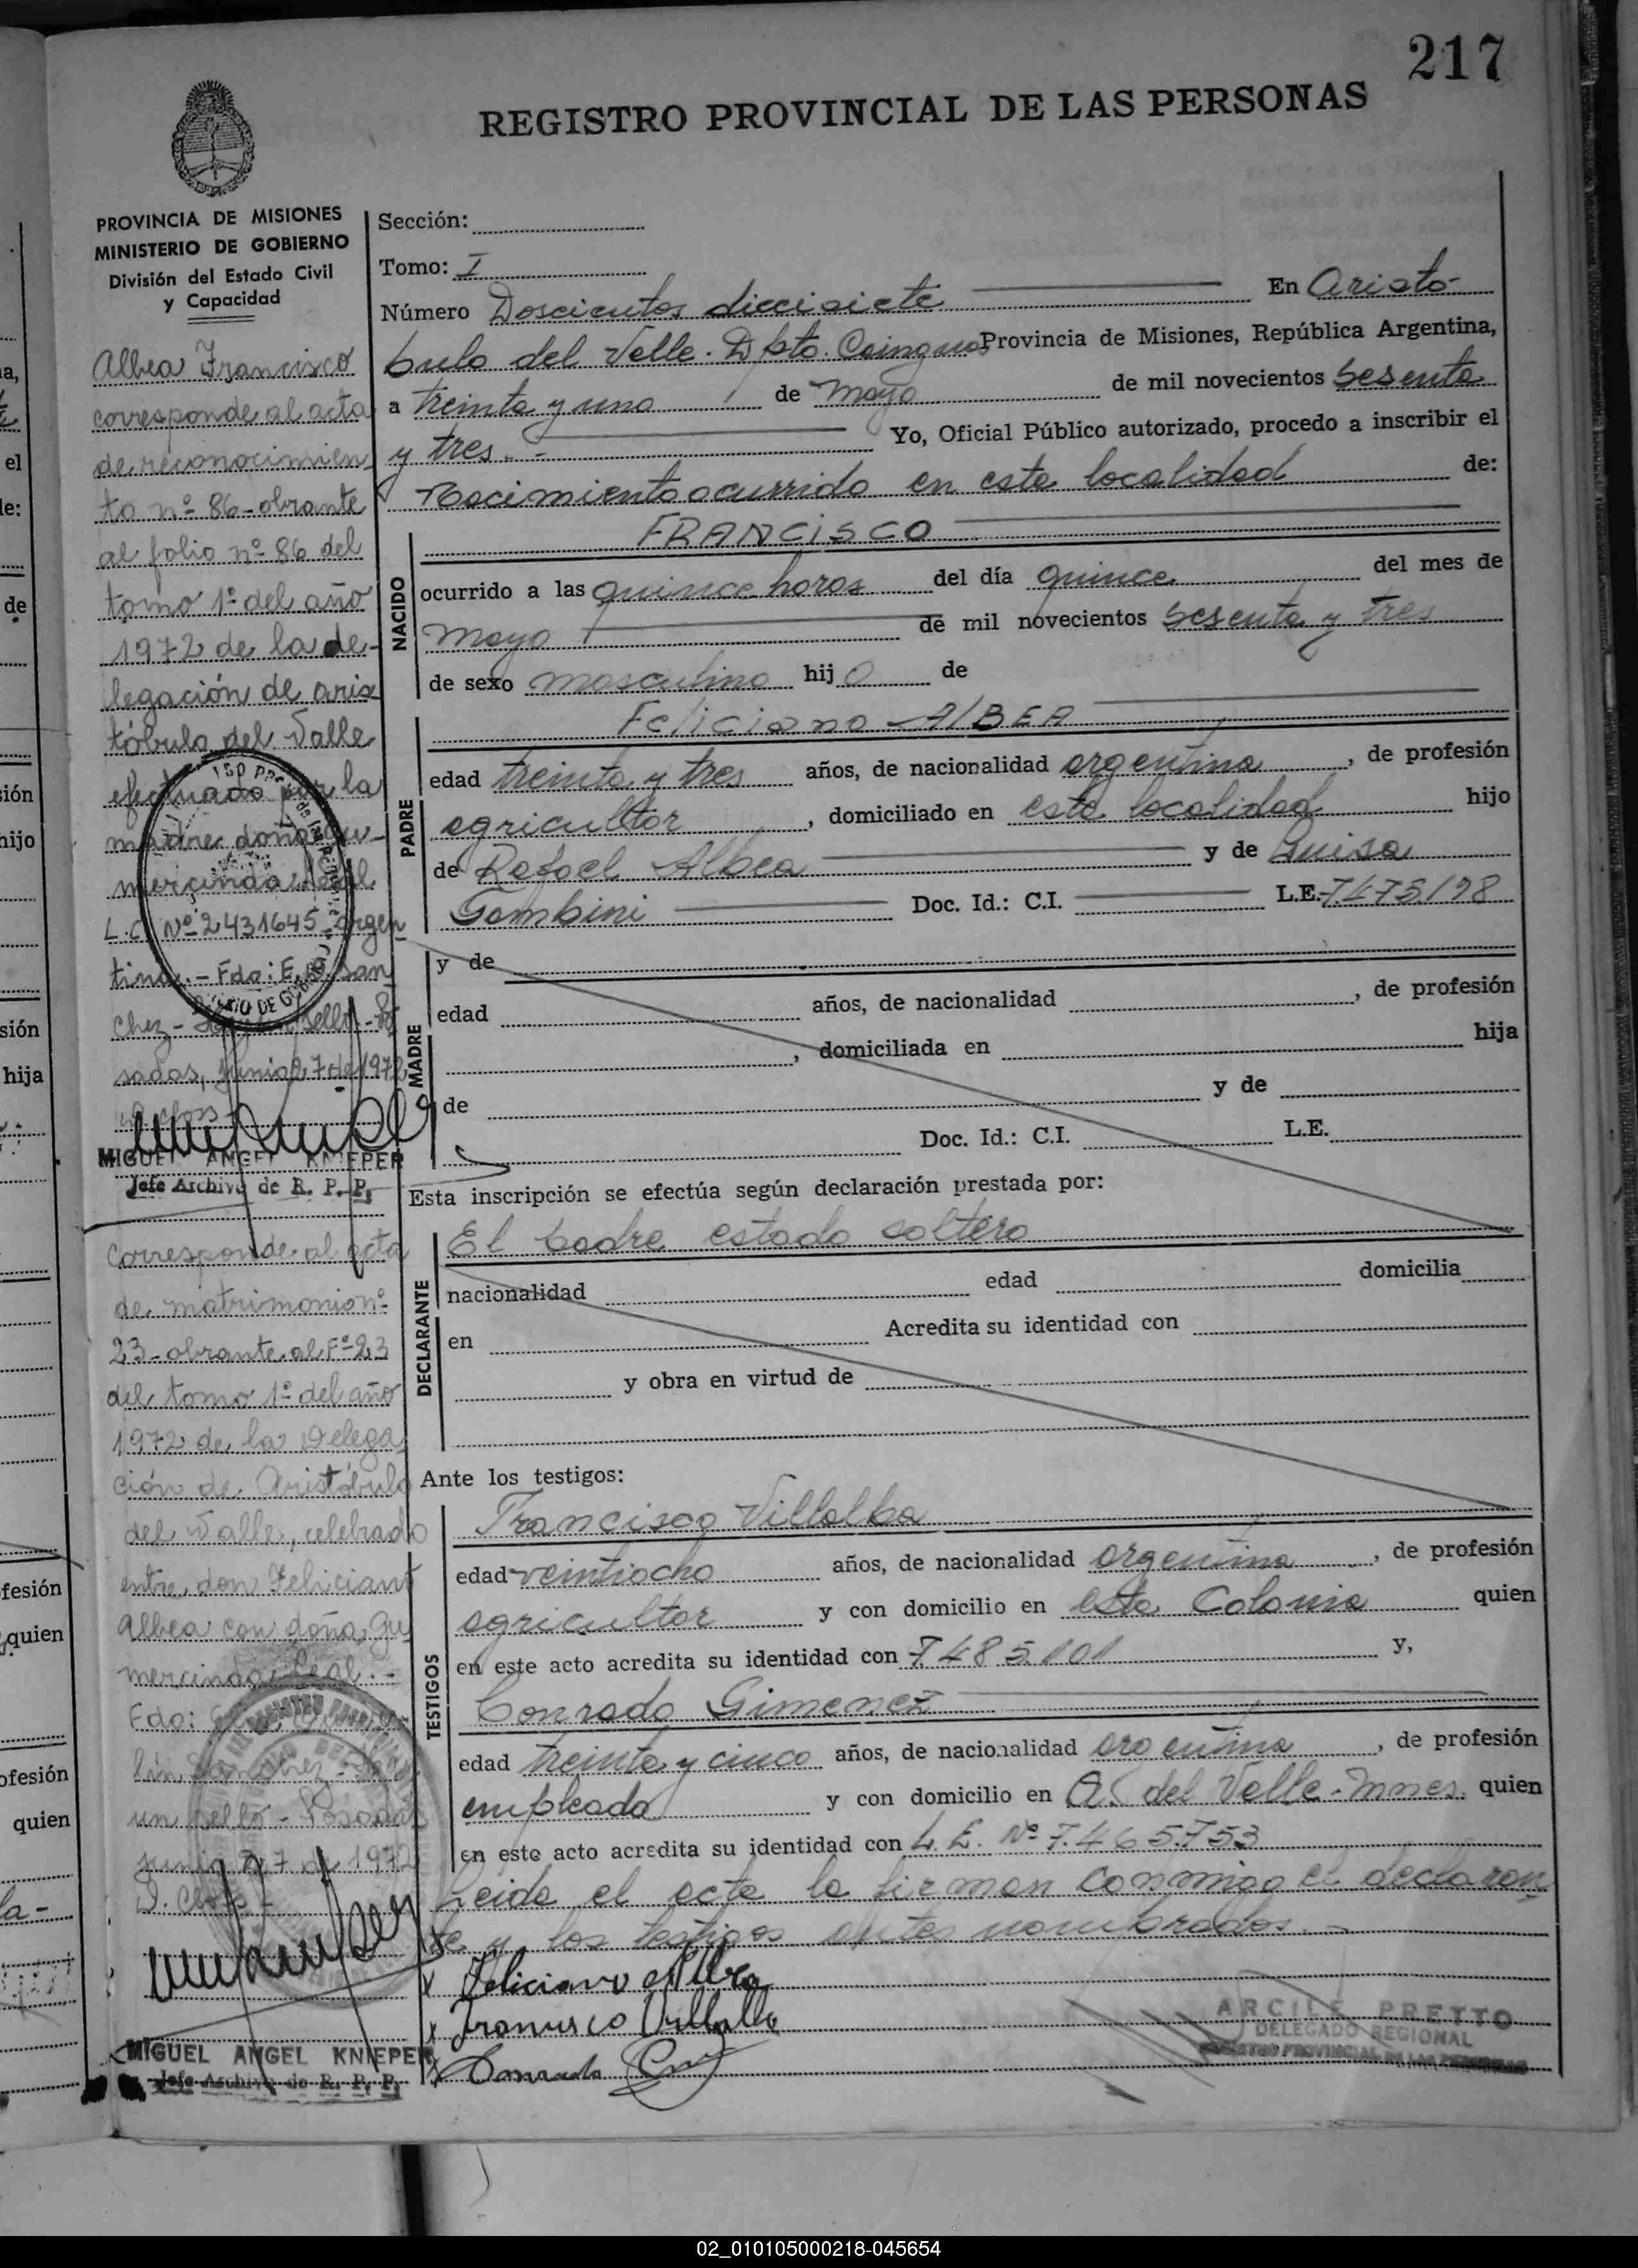 217
REGISTRO PROVINCIAL DE LAS PERSONAS
PROVINCIA DE MISIONES
MINISTERIO DE GOBIERNO
División del Estado Civil
y Capacidad
Sección:
Tomo: I
Número Doscientos diecisiete En Aristo-
bulo del Valle. Dpto. Cainguas Provincia de Misiones, República Argentina,
a treinta y uno de Mayo de mil novecientos sesenta
y tres.- Yo, Oficial Público autorizado, procedo a inscribir el
Nacimiento ocurrido en esta localidad de:
NACIDO
FRANCISCO
ocurrido a las quince horas del día quince del mes de
Mayo de mil novecientos sesenta y tres
de sexo masculino hij o de
PADRE
Feliciano ALBEA
edad treinta y tres años, de nacionalidad argentina, de profesión
agricultor, domiciliado en esta localidad hijo
de Rafael Albea y de Luisa
Gambini Doc. Id.: C.I. L.E. 7.475.198
MADRE
y de
edad años, de nacionalidad , de profesión
, domiciliada en hija
de y de
Doc. Id.: C.I. L.E.
Esta inscripción se efectúa según declaración prestada por:
DECLARANTE
El padre estado soltero
nacionalidad edad domicilia
en Acredita su identidad con
y obra en virtud de
Ante los testigos:
TESTIGOS
Francisco Villalba
edad veintiocho años, de nacionalidad argentina, de profesión
agricultor y con domicilio en esta Colonia quien
en este acto acredita su identidad con 7.485.101 y,
Conrado Gimenez
edad treinta y cinco años, de nacionalidad argentina, de profesión
empleado y con domicilio en A. del Valle-Mnes. quien
en este acto acredita su identidad con L.E. Nº 7.465.753
Leida el acta la firman conmigo el declaran
te y los testigos antes nombrados.-
Feliciano Albea
Francisco Villalba
Conrado
ARCILE PRETTO
DELEGADO REGIONAL
REGISTRO PROVINCIAL DE LAS PERSONAS
Albea Francisco
corresponde al acta
de reconocimien
to nº 86-obrante
al folio nº 86 del
tomo 1º del año
1972 de la de-
legación de aris
tóbulo del Valle
efectuado por la
madre doña Gu-
mercinda Leal
L.C. Nº 2431645-argen
tina.- Fdo: E. San
chez - sello - Po
sadas, Junio 27 de 1972
MIGUEL ANGEL KNIEPER
Jefe Archivo de R. P. P.
Corresponde al acta
de matrimonio nº
23-obrante al Fº 23
del tomo 1º del año
1972 de la Delega
ción de Aristóbulo
del Valle, celebrado
entre don Feliciano
Albea con doña Gu
mercinda Leal.-
Fdo:
lin Sanchez - Hay
un sello - Posadas
Junio 27 de 1972
MIGUEL ANGEL KNIEPER
Jefe Archivo de R. P. P.
02_010105000218-045654